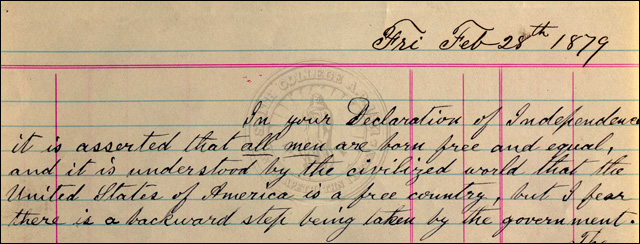 Fri Feb 28th 1879
In your Declaration of Independence
it is asserted that all men are born free and equal,
and it is understood by the civilized world that the
United States of America is a free country, but I fear
there is a backward step being taken by the government.